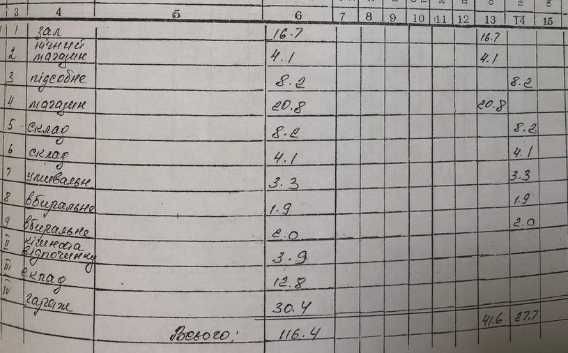 3 4 5 6 7 8 9 10 11 12 13 14 15
1 зал 16.7 16.7
2 нічний магазин 4.1 4.1
3 підсобне 8.2 8.2
4 магазин 20.8 20.8
5 склад 8.2 8.2
6 склад 4.1 4.1
7 умивальн 3.3 3.3
8 вбиральне 1.9 1.9
9 вбиральне 2.0 2.0
II кімната відпочинку 3.9
III склад 12.8
IV гараж 30.4
Всього: 116.4 41.6 27.7